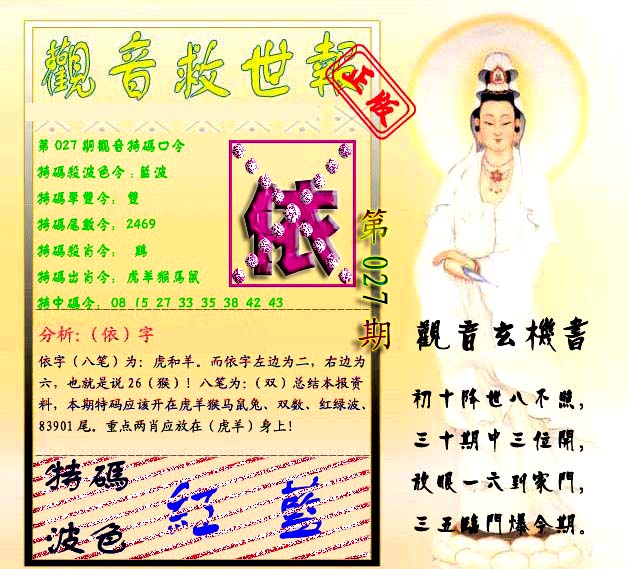 觀音救世報
正版
第027期觀音特碼口令
特碼殺波色令:藍波
特碼單雙令: 雙
特碼尾數令: 2469
特碼殺肖令: 鷄
特碼出肖令: 虎羊猴馬鼠
特中碼令: 08 15 27 33 35 38 42 43
依
第027期
分析:(依)字
依字(八笔)为:虎和羊。而依字左边为二,右边为
六,也就是说26(猴)!八笔为:(双)总结本报资
料,本期特码应该开在虎羊猴马鼠兔、双数、红绿波、
83901尾。重点两肖应放在(虎羊)身上!
特碼
波色
紅 藍
觀音玄機書
初十降世八不瞧,
三十期中三位開,
放眼一六到家門,
三五臨門爆今期。